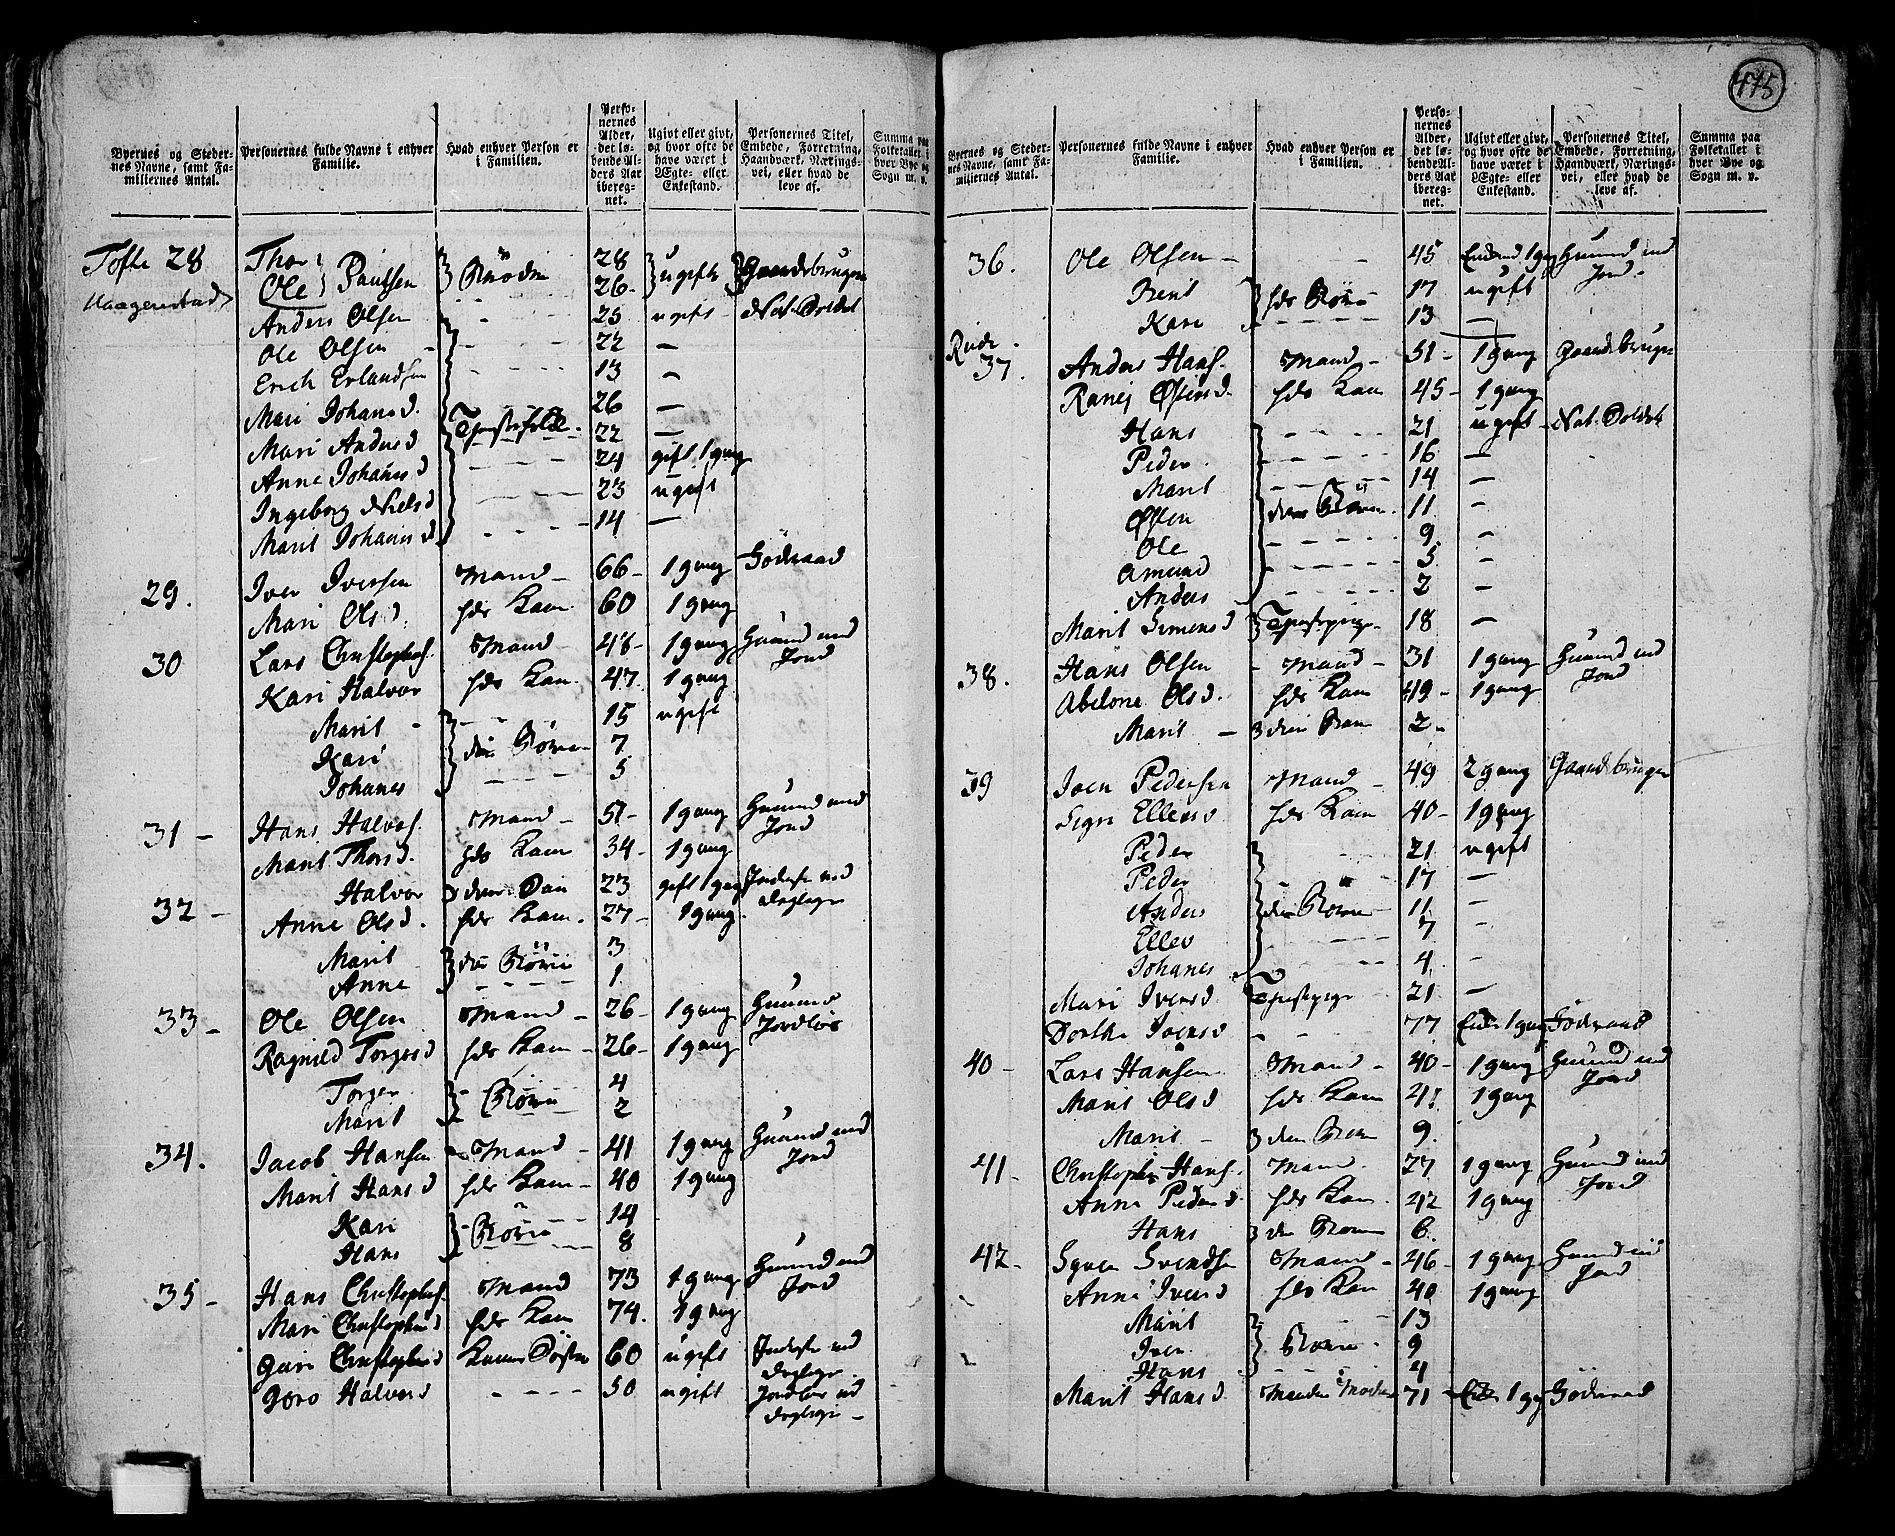 475
Byernes og Steder-
nes Navne, samt Fa-
miliernes Antal.
Personernes fulde Navne i enhver
Familie.
Hvad enhver Person er
i Familien.
Perso-
nernes
Alder,
det lø-
bende Al-
ders Aar
ibereg-
net.
Ugivt eller givt,
og hvor ofte de
have været i
Ægte- eller
Enkestand.
Personernes Titel,
Embede, Forretning,
Haandværk, Nærings-
vei, eller hvad de
leve af.
Summa paa
Folketallet i
hver Bye og
Sogn m. v.
Tofte 28 Thor
Ole Paulsen Brödre 28 26 ugifte Gaardsbruger
Anders Olsen 25 ugift Nat. Soldat
Ole Olsen 22 —
Erich Erlandsen 13 —
Mari Johansd. 26 —
Mari Andersd Tjenstefolk 22 —
Anne Johansd 24 gift 1 gang
Ingeborg Nielsd 23 ugift
Marit Johansd 14 —
29. Iver Iversen Mand 66 1 gang Födraad
Mari Olsd. hds Kone 60 1 gang
30 Lars Christophs. Mand 48 1 gang Huusmd med
Jord
Kari Halvor hds Kone 47 1 gang
Marit 15 ugift
Kari 7
Johanes 5
31 — Hans Halvos. Mand 51 1 gang Huusmd med
Jord
Marit Thorsd. hds Kone 34 1 gang
32 — Halvor 23 gift 1 gang
Anne Olsd. hds Kone 27 1 gang
Marit 3
Anne 1
33 — Ole Olsen Mand 26 1 gang Huusmd
Jordlös
Ragnild Torgersd hds Kone 26 1 gang
Torger Börn 4
Marit 2
34. Jacob Hansen Mand 41 1 gang Huusmd med
Jord
Marit Hansd hds Kone 40 1 gang
Kari Börn 14
Hans 8
35 — Hans Christophs. Mand 73 1 gang Huusmd med
Jord
Mari Christophersd hds Kone 74. 1 gang
Guri Christophersd Konens Söster 60 ugift
Goro Halvorsd 50 ugift Jordlös
Byernes og Steder-
nes Navne, samt Fa-
miliernes Antal.
Personernes fulde Navne i enhver
Familie.
Hvad enhver Person er
i Familien.
Perso-
nernes
Alder,
det lø-
bende Al-
ders Aar
ibereg-
net.
Ugivt eller givt,
og hvor ofte de
have været i
Ægte- eller
Enkestand.
Personernes Titel,
Embede, Forretning,
Haandværk, Nærings-
vei, eller hvad de
leve af.
Summa paa
Folketallet i
hver Bye og
Sogn m. v.
36. Ole Olsen — 45 Huusmd md
Jord
Berit hds Börn 17 ugift
Kari 13 —
37. Anders Hans. Mand 51 1 gang Gaardsbruger
Ranej Østensd. hds Kone 45 1 gang
Hans 21 ugift Nat. Soldat
Peder 16 —
Marit 14 —
Østen deres Börn 11 —
Ole 9 —
Amund 5 —
Anders 2 —
Marit Simensd Tjenstepige 18 —
38. Hans Olsen Mand 31 1 gang Huusmd md
Jord
Abelone Olsd. hds Kone 49 1 gang
Marit 2
39 Joen Pedersen Mand 49 2 gang Gaardsbruger
Sigri Ellevsd hds Kone 40 1 gang
Peder 21 ugift
Peder 17 —
Anders 11 —
Ellev 7 —
Johanes 4 —
Mari Iversd Tjenstepige 21 —
Dorthe Joensd 77 Födraad
40 — Lars Hansen Mand 40 1 gang Huusmd med
Jord
Marit Olsd hds Kone 1 gang
Marit 9.
41 — Christopher Hans. Mand 27 1 gang Huusmd med
Jord
Anne Pedersd hds Kone 42 1 gang
Hans 6.
42 — Svendsen Mand 46 1 gang Huusmd md
Jord
Anne Iversd hds Kone 40 1 gang
Marit 13
Iver Börn 9
Hans 4
Marit Hansd Mandens Moder 71 Födraad